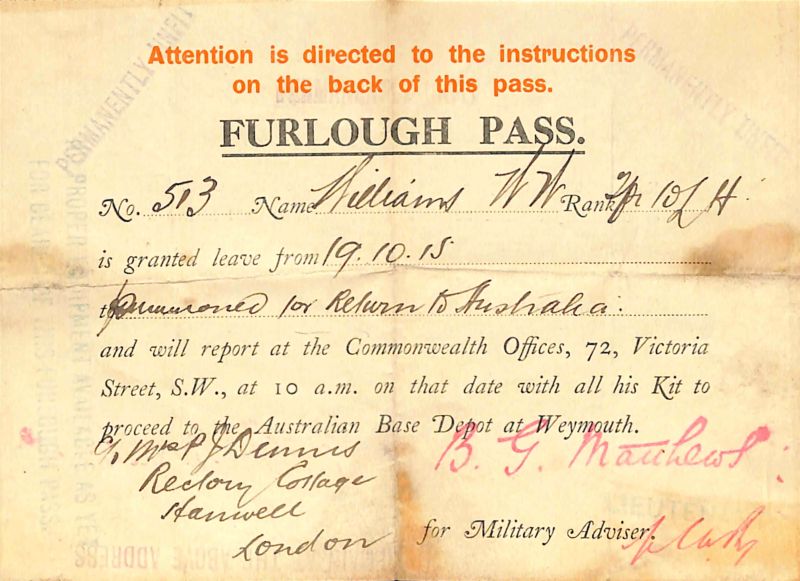 Attention is directed to the instructions
on the back of this pass.
PERMANENTLY UNFIT
PERMANENTLY UNFIT
FURLOUGH PASS.
No. 513 Name Williams W W Rank Tpr 10 L H.
is granted leave from 19.10.15
to summoned for Return to Australia.
and will report at the Commonwealth Offices, 72, Victoria
Street, S.W., at 10 a.m. on that date with all his Kit to
proceed to the Australian Base Depot at Weymouth.
B. G. Matthews.
c/o Mrs P J Dennis
Rectory Cottage
Hanwell
London
for Military Adviser.